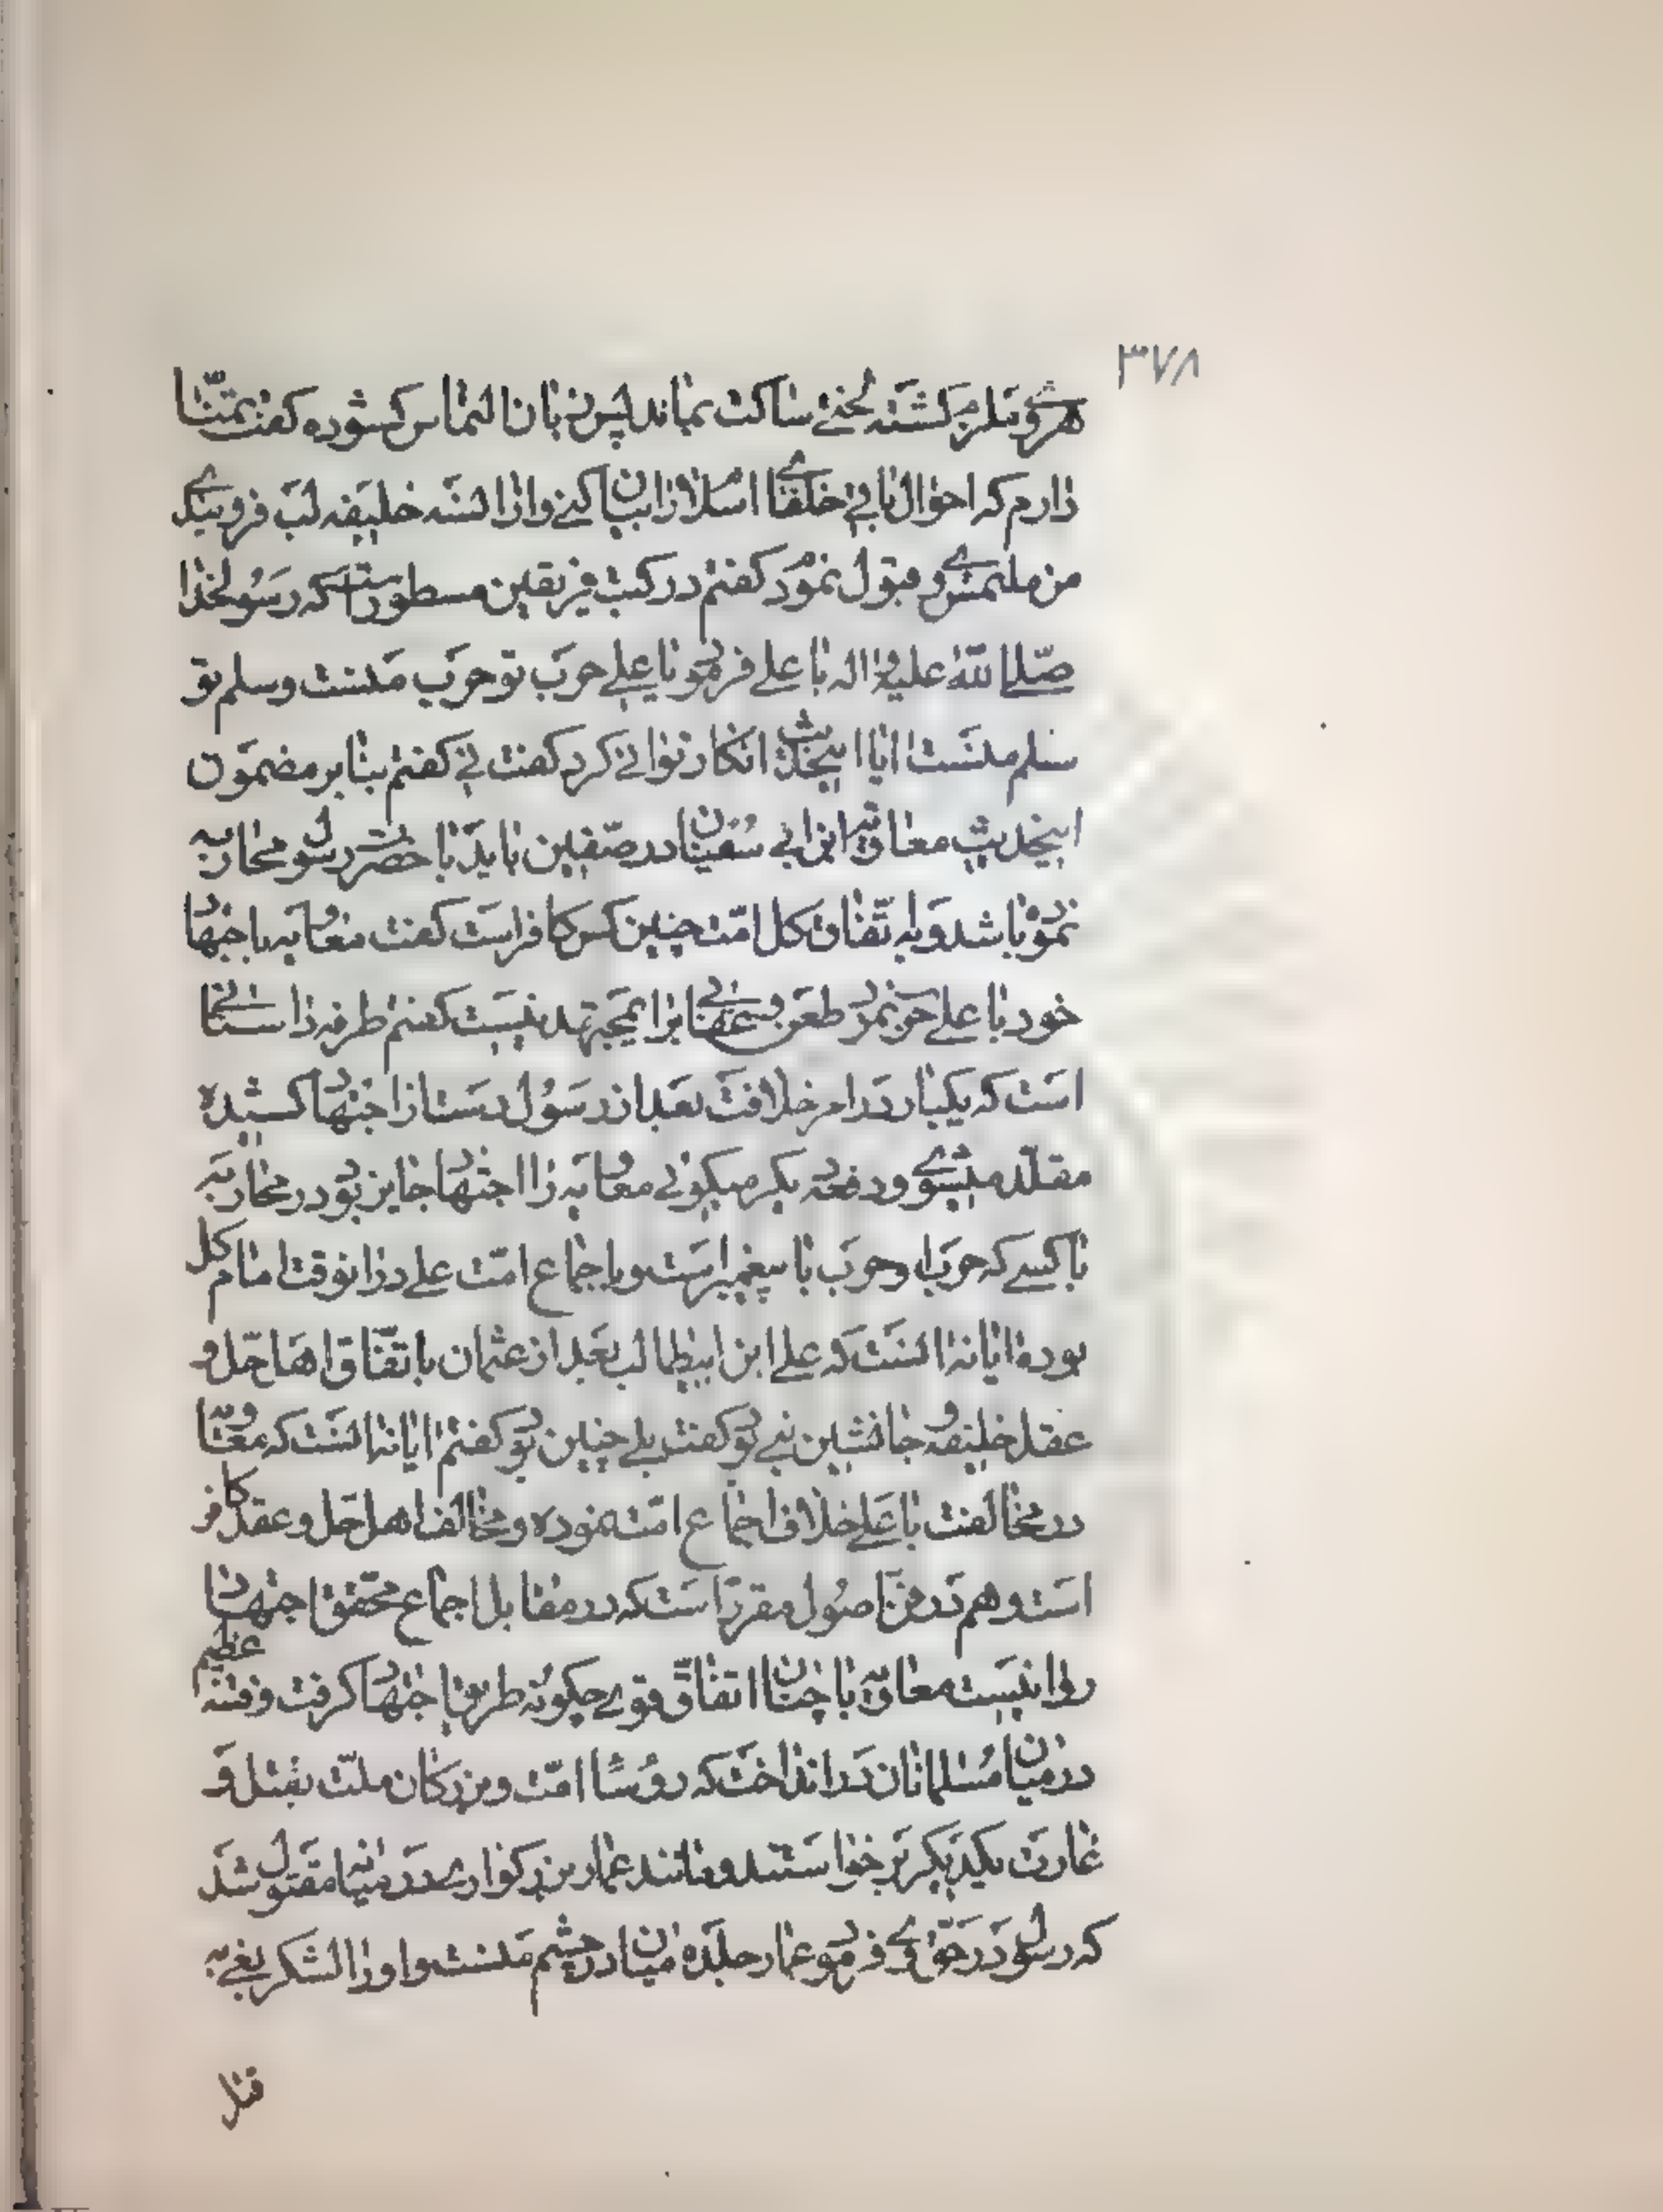 ۳۷۸
هروی ملزم کشته لختی ساکت بماند پس زبان التماس کشوده کفت تمنا
دارم که احوال باقی خلفا را بیان کنی و از السنه خلیفه لب فرو
من ملتمس وی قبول نمود کفتم در کتب فریقین مسطور است که رسول خدا
صلی الله علیه و اله با علی فرمود یا علی حرب تو حرب منست و سلم تو
سلم منست ایا اینحدیث انکار توانی کرد کفت نی کفتم بنا بر مضمون
اینحدیث معاویه ابن ابی سفیان در صفین باید با حضرت رسول محاربه
نموده باشد و به اتفاق کل امت چنین کس کافر است کفت معاویه باجتهاد
خود با علی حرب نمود طعن وی عقابی برای مجتهد نیست کفتم طرفه داستانی
است که یکبار در امر خلافت بعد از رسول دست از اجتهاد کشیده
مقلد میشوی و دفعه دیکر میکوئی معاویه را اجتهاد جایز بود در محاربه
با کسی که حرب او حرب با پیغمبر است و باجماع امت علی در انوقت امام کل
بوده ایا نه انست که علی ابن ابیطالب بعد از عثمان باتفاق اهل حل و
عقد خلیفه و جانشین نبی بود کفت بلی چنین بود کفتم ایا نه انست که معویه
در مخالفت با علی خلاف اجماع امت نموده و مخالف اهل حل و عقد کافر
است و هم در فن اصول مقرر است که در مقابل اجماع محقق اجتهاد
روا نیست معاویه با چنان اتفاق قوی چکونه طریق اجتهاد کرفت و فتنه عظیم
در میان مسلمانان در انداخت که روسا امت و بزرکان ملت بقتل و
غارت یکدیکر برخواستند و مانند عمار بزرکواری در میانه مقتول شد
که رسول در حق وی فرمود عمار جلده میان دو چشم منست و او را لشکر بغی به
قتل